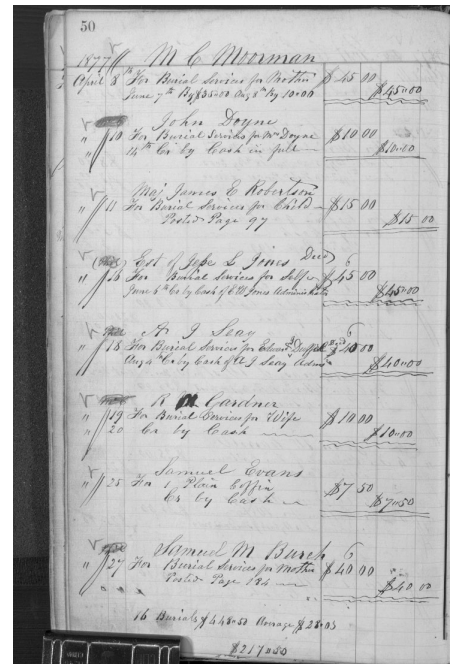 50
1897 M C Moorman
April 3 For Burial Services for Mother $45 00
June 7th By $35=00 Aug 8th By 10=00 $45=00
John Doyne
" 10 For Burial Services for Mrs Doyne $10 00
" 14th Cr by Cash in full $10=00
Maj James E Robertson
" 11 For Burial Services for Child $15 00
Posted Page 97 $15 00
Est of Jope L Jones Decd 6
" 16 For Burial Services for Self $45 00
June 6th Cr by Cash of Jones Administrator $45=00
A J Seay 6
" 18 For Burial Services for Edward 40 00
Aug 4th Cr by Cash of A J Seay Adms $40=00
R Gardner
" 19 For Burial Services for Wife $10 00
" 20 Cr by Cash $10=00
Samuel Evans
" 25 For 1 Plain Coffin $7 50
Cr by Cash $7=50
Samuel M Burch 6
" 27 For Burial Services for Mother $40 00
" " " Posted Page 184 $40 00
16 Burials $448=50 Average $28=03
$217=50